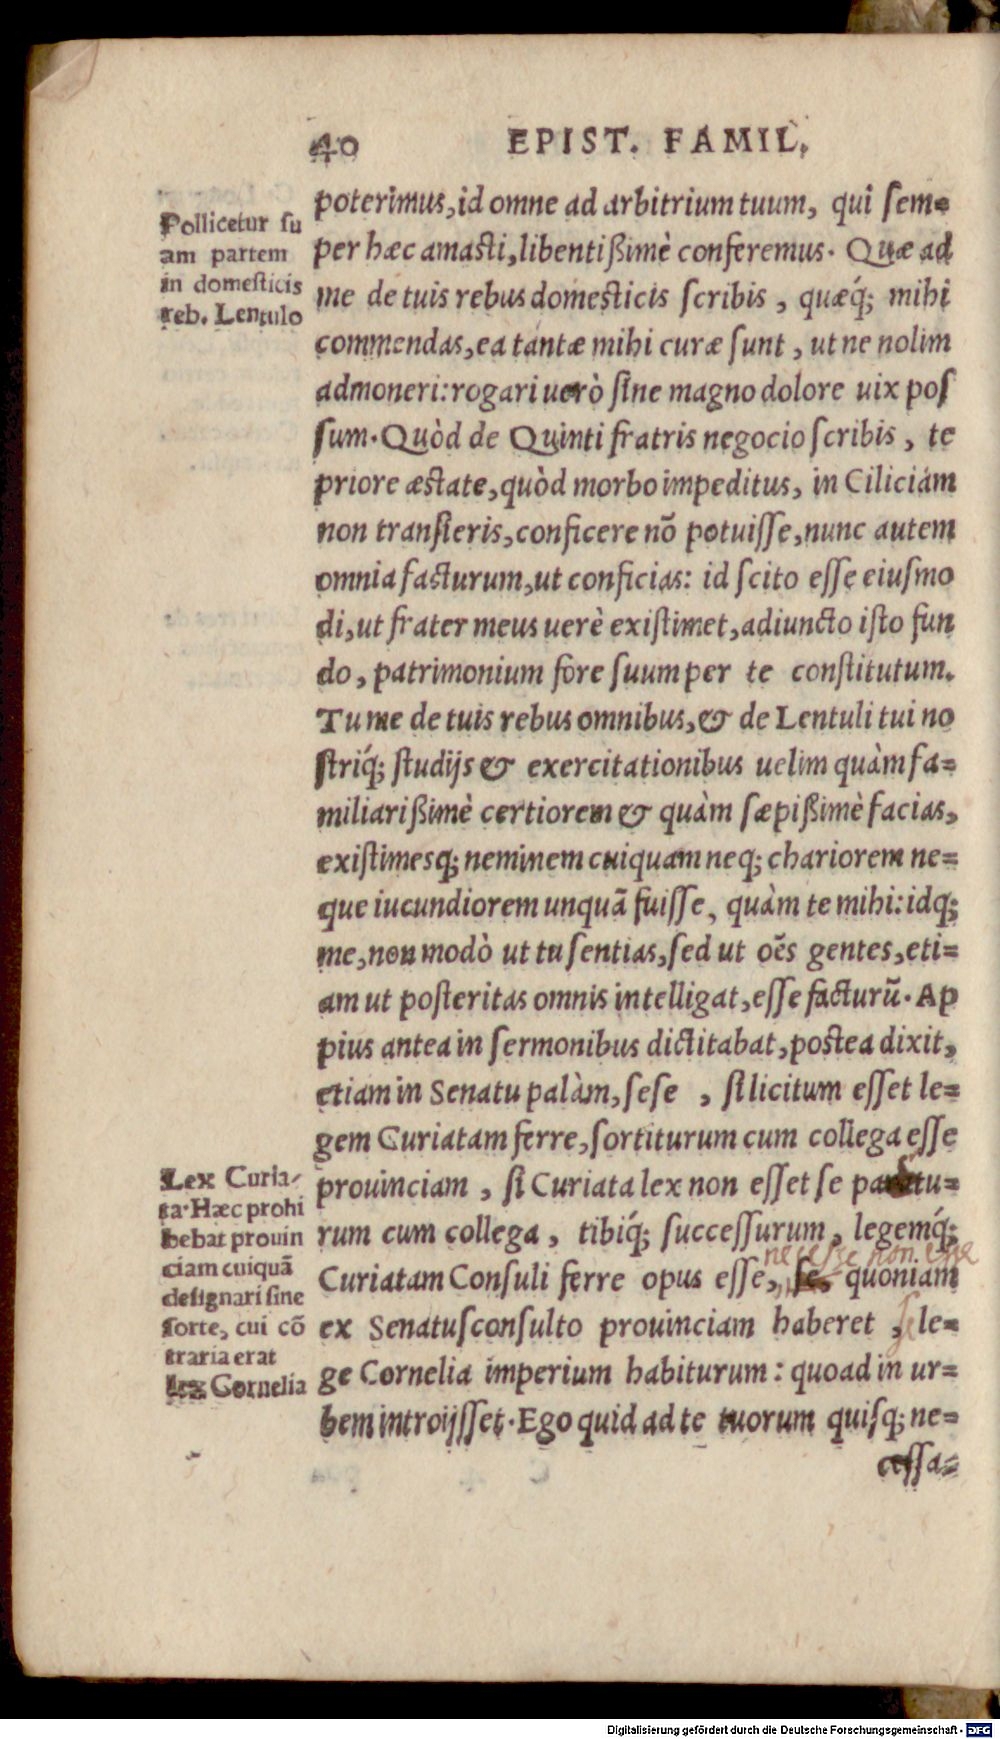 40 EPIST. FAMIL.
poterimus, id omne ad arbitrium tuum, qui sem=
per hæc amasti, libentißimè conferemus. Quæ ad
me de tuis rebus domesticis scribis, quæq́; mihi
commendas, ea tantæ mihi curæ sunt, ut ne nolim
admoneri: rogari uerò sine magno dolore uix pos
sum. Quòd de Quinti fratris negocio scribis, te
priore æstate, quòd morbo impeditus, in Ciliciam
non transieris, conficere nõ potuisse, nunc autem
omnia facturum, ut conficias: id scito esse eiusmo
di, ut frater meus uerè existimet, adiuncto isto fun
do, patrimonium fore suum per te constitutum.
Tu me de tuis rebus omnibus, & de Lentuli tui no
striq́; studijs & exercitationibus uelim quàm fa=
miliarißimè certiorem & quàm sæpißimè facias,
existimesq; neminem cuiquam neq; chariorem ne=
que iucundiorem unquã fuisse, quàm te mihi: idq;
me, non modò ut tu sentias, sed ut oẽs gentes, eti=
am ut posteritas omnis intelligat, esse facturũ. Ap
pius antea in sermonibus dictitabat, postea dixit,
etiam in Senatu palàm, sese , si licitum esset le=
gem Curiatam ferre, sortiturum cum collega esse
prouinciam, si Curiata lex non esset se paratu=
rum cum collega, tibiq́; successurum, legemq́;
necesse non esse
Curiatam Consuli ferre opus esse, se, quoniam
ex Senatusconsulto prouinciam haberet, se le=
ge Cornelia imperium habiturum: quoad in ur=
bem introijsset. Ego quid ad te tuorum quisq; ne=
cessa=
Pollicetur su
am partem
in domesticis
reb. Lentulo
Lex Curia-
ta. Hæc prohi
bebat prouin
ciam cuiquã
designari sine
sorte, cui cõ
traria erat
lex Cornelia
Digitalisierung gefördert durch die Deutsche Forschungsgemeinschaft - DFG